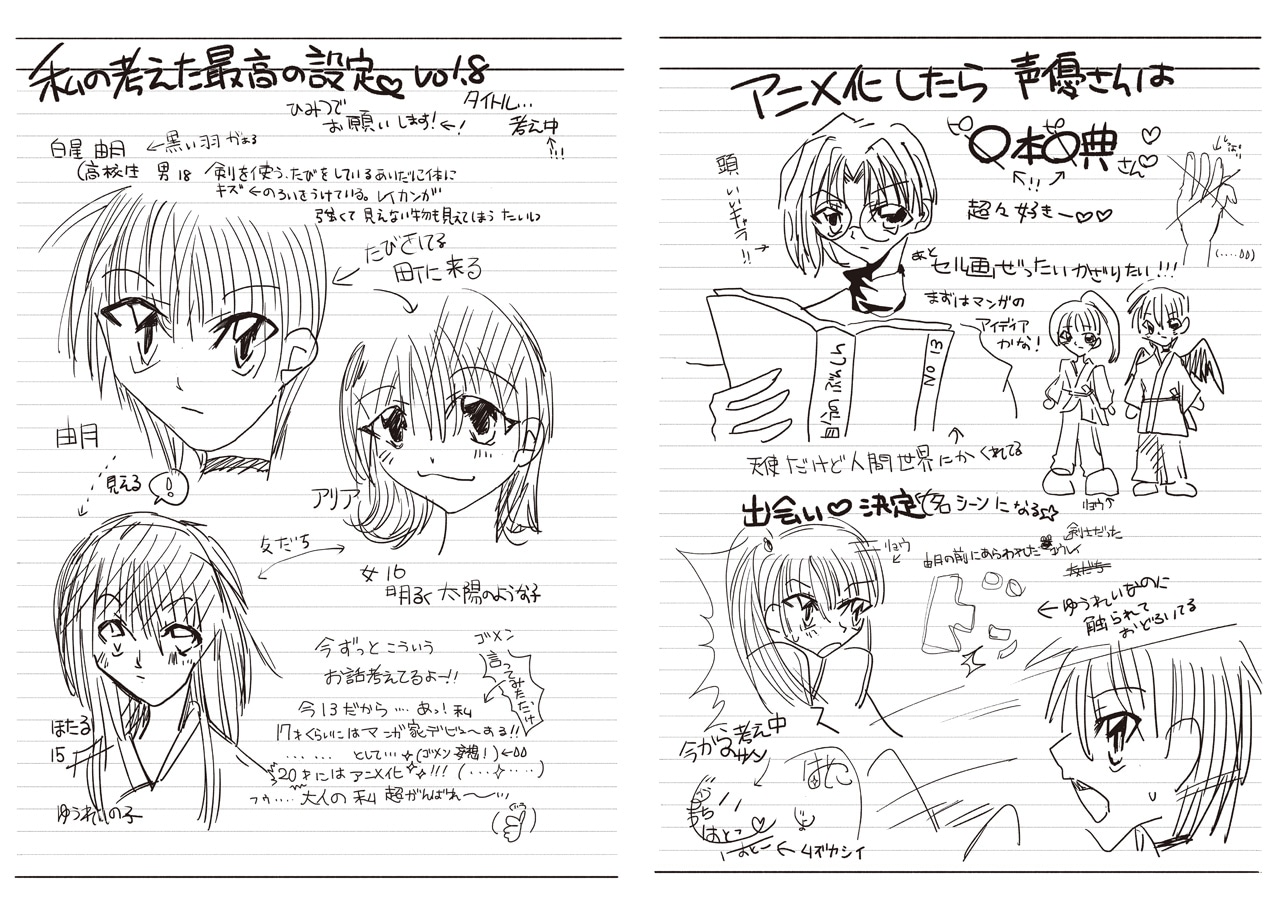 私の考えた最高の設定♡ vol.8
ひみつで
お願いします!←!
タイトル…
考え中
↑!!!
白星 由月 ←黒い羽がある
(高校生 男 18 剣を使う。たびをしているあいだに体に
キズ←のろいをうけている。レイカンが
強くて見えない物も見えてしまうたいしつ
たびをしてる
町に来る
由月
見える
!
アリア
友だち
女 16
明るく太陽のような子
ほたる
15
ゆうれいの子
今ずっとこういう
お話考えてるよー!!
ゴメン
言ってみただけ
今13だから…あっ!私
17才くらいにはマンガ家デビューする!!
…… …として…(ゴメン妄想!)
20才にはアニメ化!!!(………)
フゥ……大人の私 超がんばれ〜…
アニメ化したら 声優さんは
〇本〇典さん♡♡
↑!!
超々好きー♡♡
頭いいキャラ!!
あと
セル画ぜったいかざりたい!!!
まずはマンガの
アイディア
かな!
自分のぶんしん
No 13
天使だけど人間世界にかくれてる
リョウ↑
出会い♡決定(名シーンになる☆
リョウ
剣士だった
由月の前にあらわれたユウレイ
友だち
←ゆうれいなのに
触られて
おどろいてる
今がんな考え中
はとこ
ームズカシイ